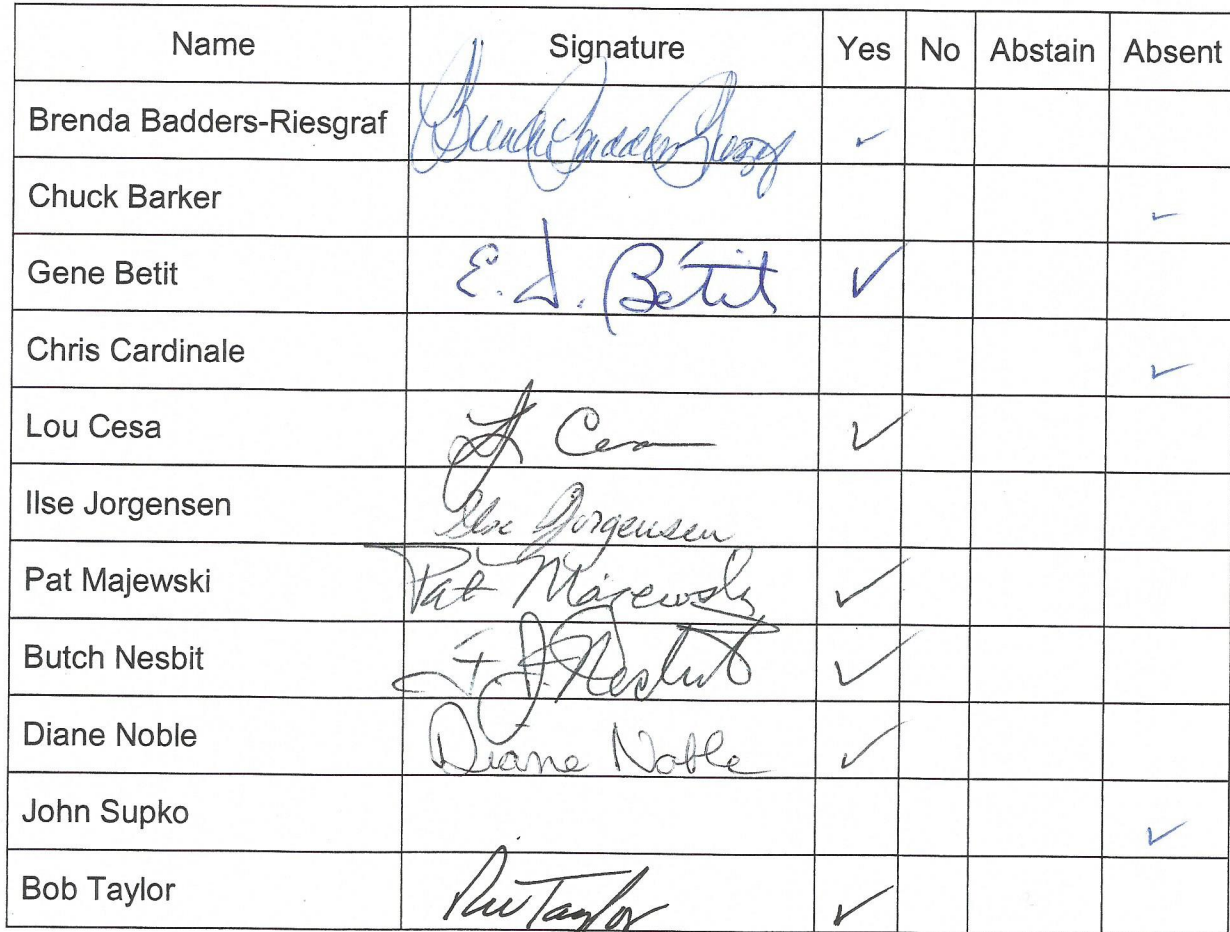 Name Signature Yes No Abstain Absent
Brenda Badders-Riesgraf Brenda Badders ✓
Chuck Barker ✓
Gene Betit E. D. Bétit ✓
Chris Cardinale ✓
Lou Cesa L Cesa ✓
Ilse Jorgensen Ilse Jorgensen
Pat Majewski Pat Majewski ✓
Butch Nesbit F. J. Nesbit ✓
Diane Noble Diane Noble ✓
John Supko ✓
Bob Taylor Taylor ✓